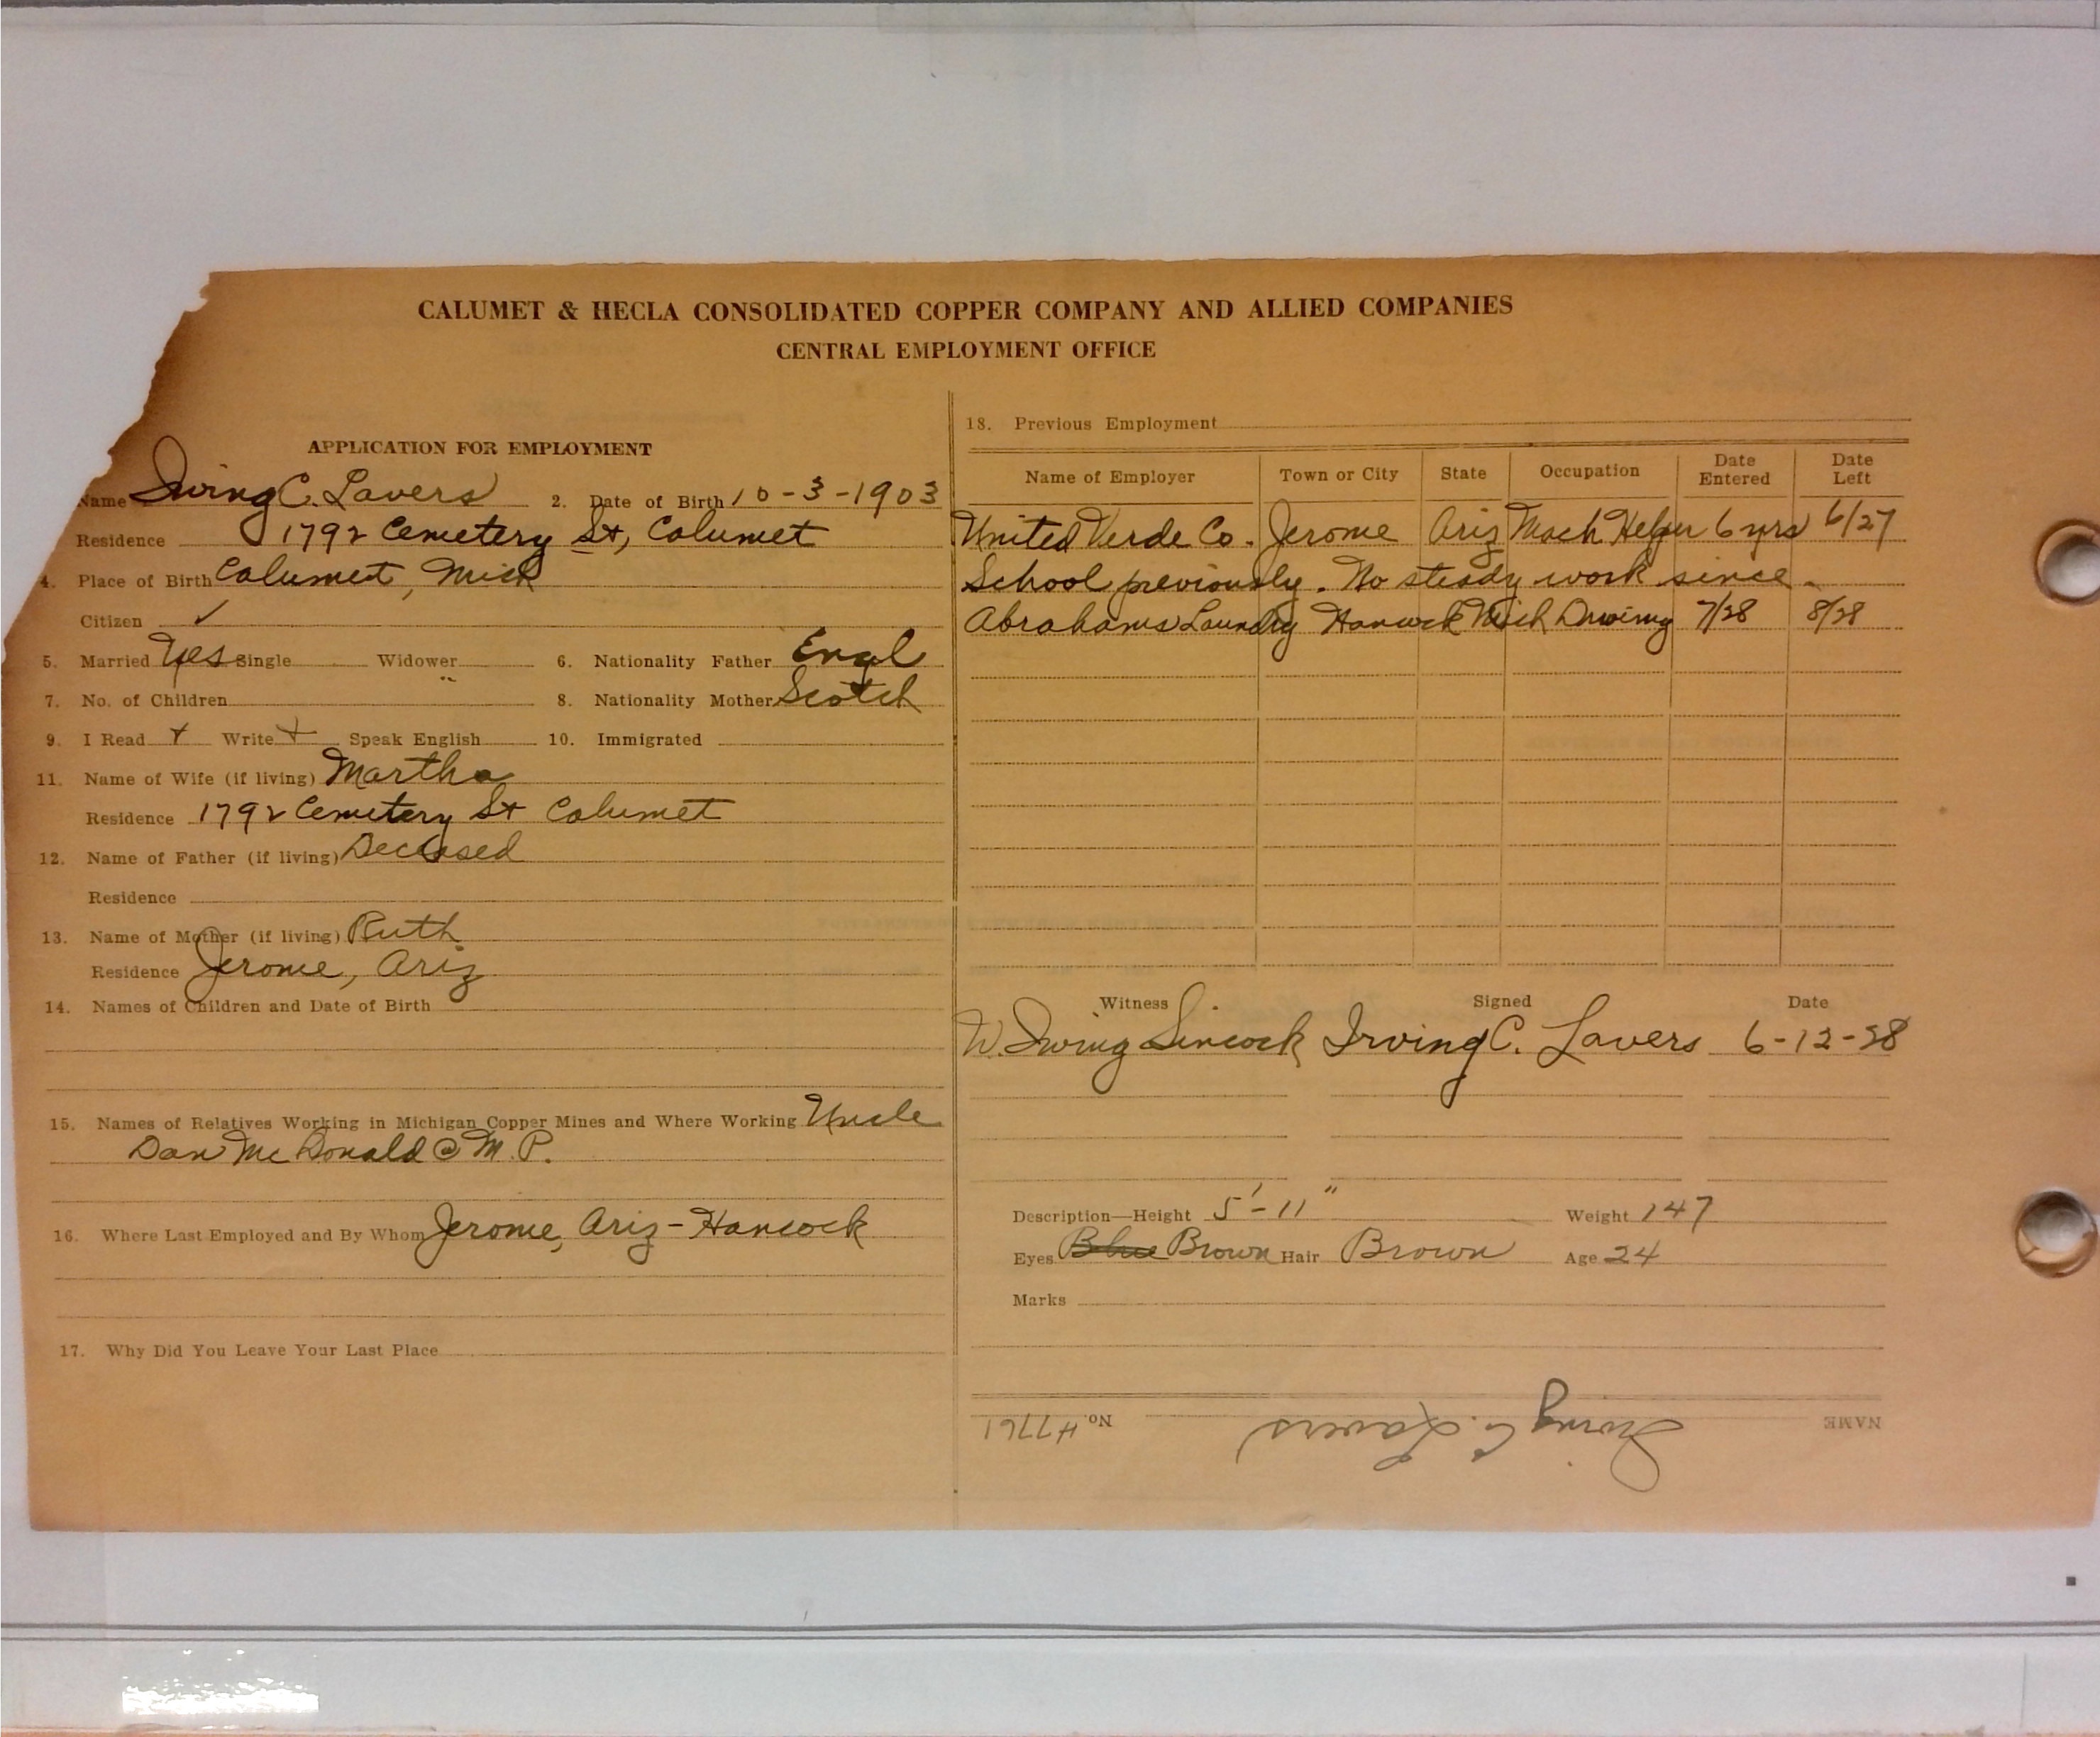 CALUMET & HECLA CONSOLIDATED COPPER COMPANY AND ALLIED COMPANIES
CENTRAL EMPLOYMENT OFFICE
APPLICATION FOR EMPLOYMENT
Name Irving C. Lavers 2. Date of Birth 10-3-1903
Residence 1792 Cemetery St, Calumet
4. Place of Birth Calumet, Mich
Citizen ✓
5. Married Yes Single Widower 6. Nationality Father Engl
7. No. of Children 8. Nationality Mother Scotch
9. I Read + Write + Speak English 10. Immigrated
11. Name of Wife (if living) Martha
Residence 1792 Cemetery St Calumet
12. Name of Father (if living) Deceased
Residence
13. Name of Mother (if living) Ruth
Residence Jerome, Ariz
14. Names of Children and Date of Birth
15. Names of Relatives Working in Michigan Copper Mines and Where Working Uncle
Dan McDonald @ M. P.
16. Where Last Employed and By Whom Jerome, Ariz - Hancock
17. Why Did You Leave Your Last Place
18. Previous Employment
Name of Employer Town or City State Occupation Date Entered Date Left
United Verde Co. Jerome Ariz Mach Helper 6 yrs 6/27
School previously. No steady work since.
Abrahams Laundry Hancock Mich Driving 7/28 8/28
Witness Signed Date
W. Irving Sincock Irving C. Lavers 6-12-28
Description—Height 5'-11" Weight 147
Eyes Blue Brown Hair Brown Age 24
Marks
NAME Irving C. Lavers No. H7761